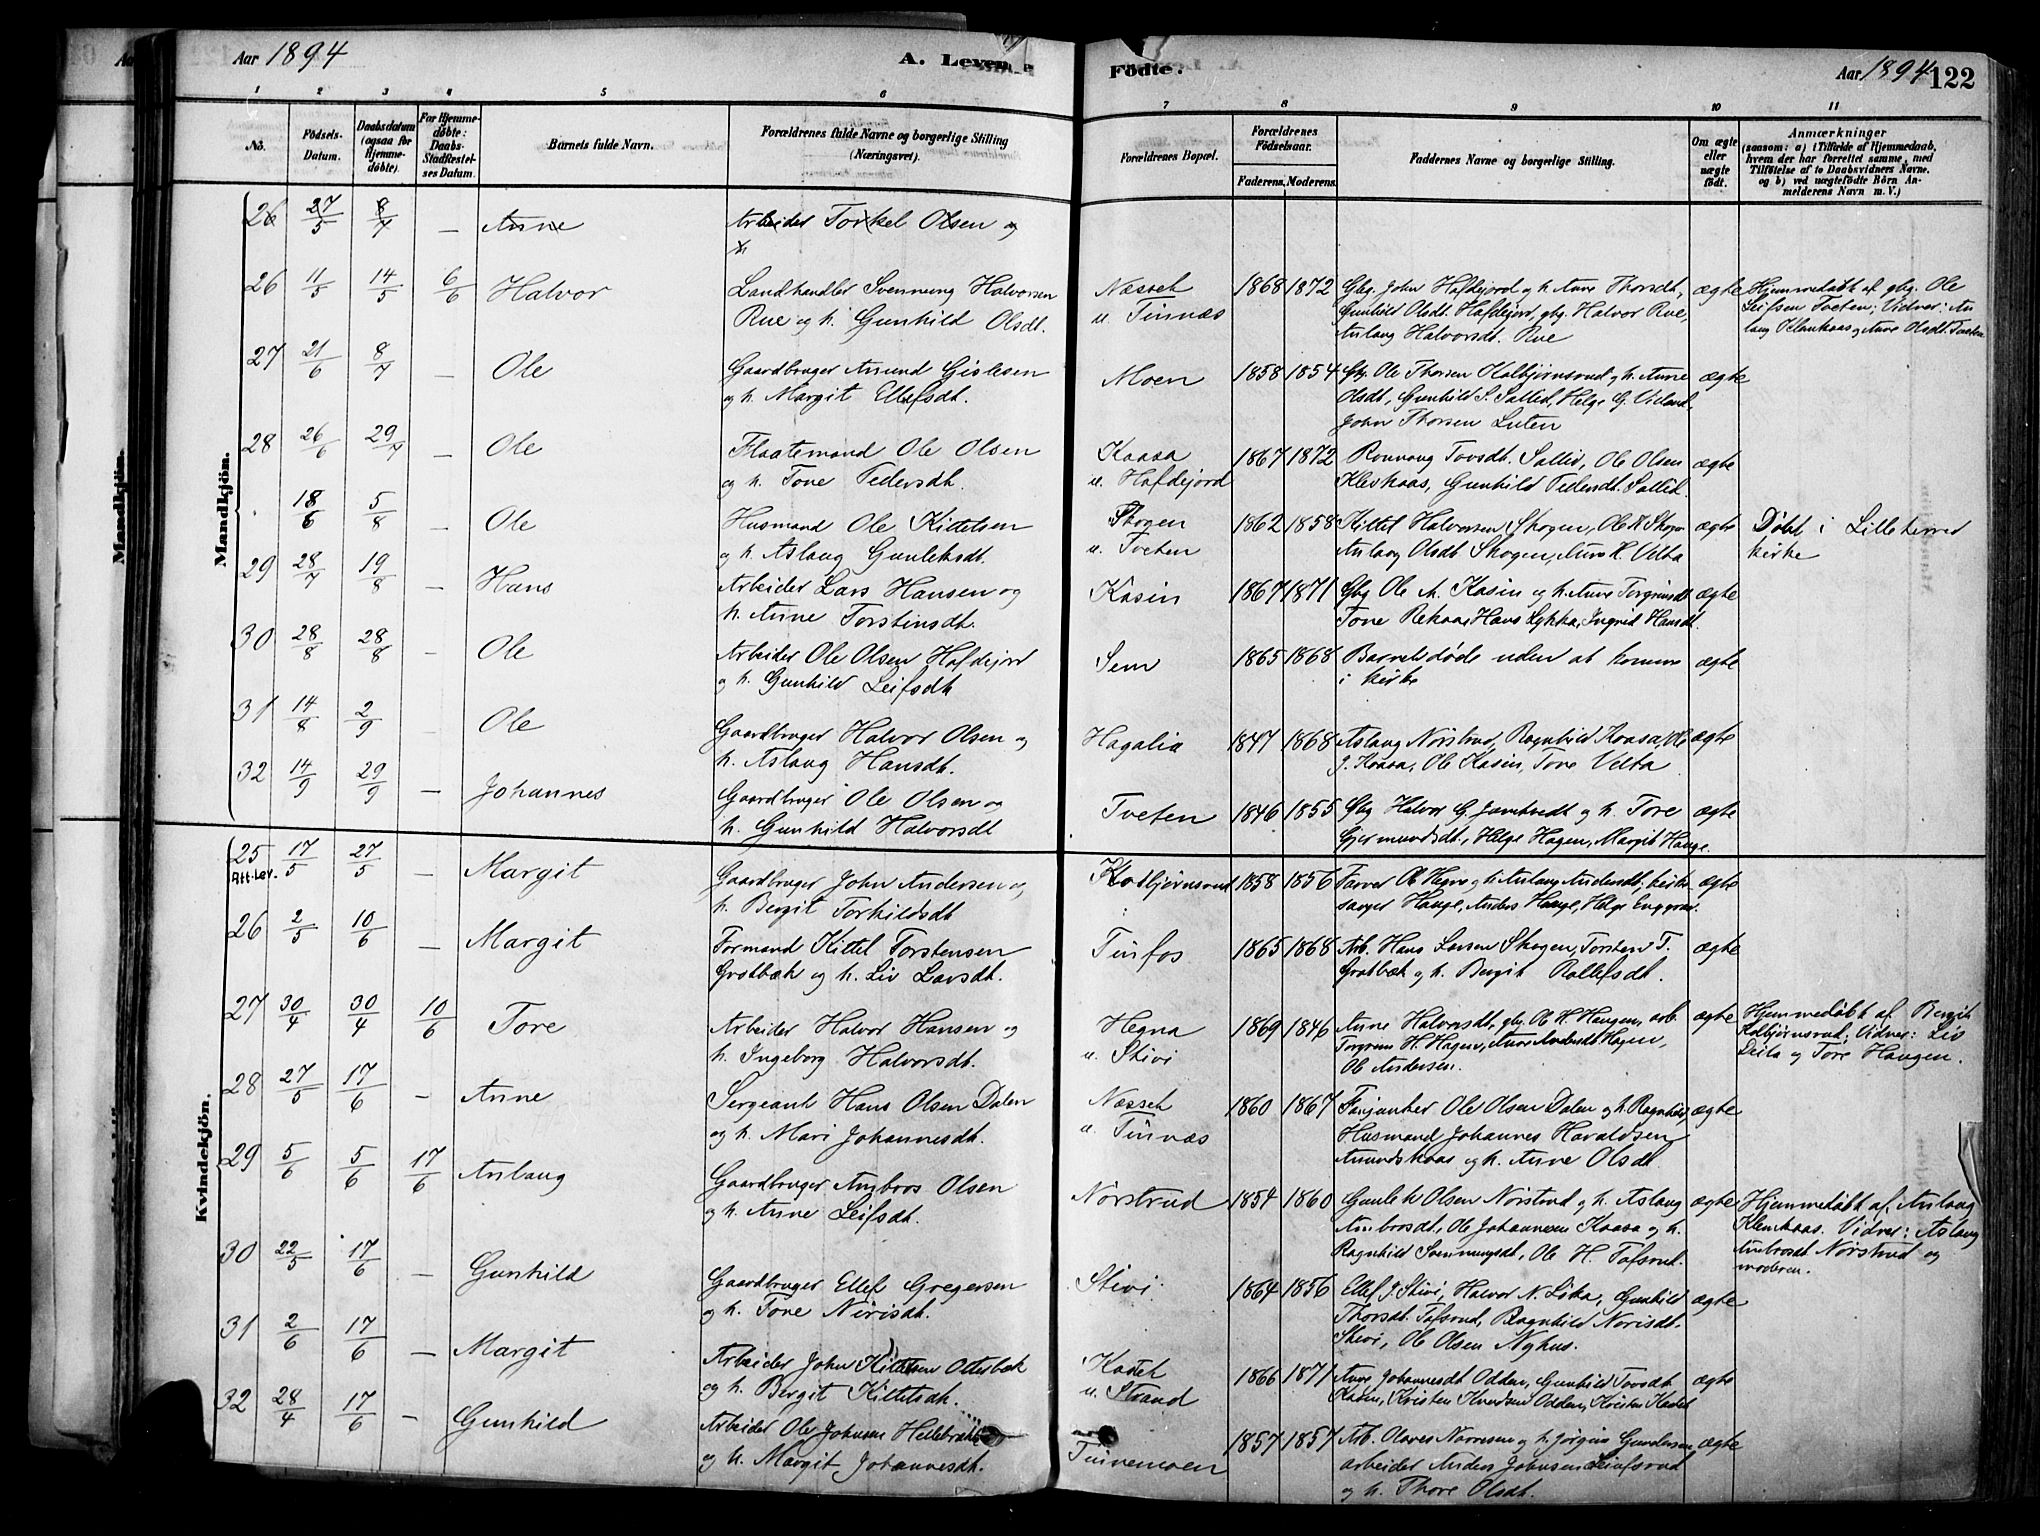 Aar 1894
A. Leven
Födte.
Aar 1894 122
1 2 3 4 5 6 7 8 9 10 11
No.
Födsels-
Datum.
Daabsdatum
(ogsaa for
Hjemme-
döbte).
For Hjemme-
döbte:
Daabs-
Stadfæstel-
ses Datum.
Barnets fulde Navn.
Forældrenes fulde Navne og borgerlige Stilling
(Næringsvei).
Forældrenes Bopæl.
Forældrenes
Födselsaar.
Faderens. Moderens.
Faddernes Navne og borgerlige Stilling.
Om ægte
eller
uægte
födt.
Anmærkninger
(saasom: a) i Tilfælde af Hjemmedaab,
hvem der har forrettet samme, med
Tilföielse af to Daabsvidners Navne.
og b) ved uægtefödte Börn An-
melderens Navn m. V.)
Mandkjön.
26 27/5 8/7 — Anne Arbeider Torkel Olsen og
h.
26 11/5 14/5 6/6 Halvor Landhandler Svennung Halvorsen
Rue og h. Gunhild Olsdt.
Næsset
u. Tinnæs
1868 1872
Gbg. John Hafdejord og h. Anne Thorsdt,
Gunhild Olsdt Hafdejord, gbg. Halvor Rue,
Aslaug Halvorsdt. Rue
ægte
Hjemmedøbt af gbg. Ole
Leifsen Tveten; Vidner: As
laug Klemkaas og Anne Olsdt Tveten
27 21/6 8/7 — Ole Gaardbruger Amund Gislesen
og h. Margit Ellefsdt.
Moen
1858 1854
Gbg. Ole Thorsen Kolbjørnsrud og h. Anne
Olsdt, Gunhild S. Sølied, Helge G. Villand,
John Thorsen Luten
ægte
28 26/6 29/7 — Ole Flaatemand Ole Olsen
og h. Tone Pedersdt.
Kaasa
u. Hafdejord
1867 1872
Rønnaug Tovsdt. Sølied, Ole Olsen
Klevkaas, Gunhild Pedersdt. Sølied.
ægte
18/6 5/8 — Ole Husmand Ole Kittelsen
og h. Aslaug Gunleksdt.
Skogen
u. Tveten
1862 1858
Kittel Halvorsen Skogen, Ole K Skogen
Aslaug Olsdt Skogen, Anne K. Velta
ægte
Døbt i Lilleherred
kirke
29 28/7 19/8 — Hans Arbeider Lars Hansen og
h. Anne Torstinsdt.
Kasin
1867 1871
Gbg Ole A. Kasin og h. Anne Torgrimsdt
Tone Rekaa, Hans Lykka, Ingrid Hansdt.
ægte
30 28/8 28/8 — Ole Arbeider Ole Olsen Hafdejord
og h. Gunhild Leifsdt
Sem
1865 1868
Barnet døde uden at komme
i kirke
ægte
31 14/8 2/9 — Ole Gaardbruger Halvor Olsen og
h. Aslaug Hansdt.
Hagalia
1847 1868
Aslaug Nørstrud, Ragnhild Kaasa, Ole
J. Kaasa, Ole Kasin, Tone Velta
ægte
32 14/9 29/9 — Johannes Gaardbruger Ole Olsen og
h. Gunhild Halvorsdt
Tveten
1846 1855
Gbg Halvor G. Jamtvedt og h. Tore
Gjermundsdt., Helge Hagen, Margit Hauge.
ægte
Kvindekjön.
25 17/5 27/5 — Margit Gaardbruger John Andersen og
Att. Lev.
h. Bergit Torkildsdt
Kolbjørnsrud
1858 1856
Farver Ole Hegna og h. Aslaug Andersdt, kirke
sanger Hauge, Anders Hauge, Helge Enggrav.
ægte
26 2/5 10/6 — Margit Formand Kittel Torstensen
Grotbæk og h. Liv Larsdt.
Tinfos
1865 1868
Arb. Hans Larsen Skogen, Torsten T.
Grotbæk og h. Bergit Rollefsdt.
ægte
27 30/4 30/4 10/6 Tore Arbeider Halvor Hansen og
h. Ingeborg Halvorsdt.
Hegna
u. Skivi
1869 1846
Anne Halvorsdt, gbg. Ole H. Haugen, arb.
Torgrim H. Hagen, Anne Andersdt Hagen,
Ole Andersen.
ægte
Hjemmedøbt af Bergit
Kolbjørnsrud; Vidner: Liv
og Tore Haugen.
28 27/5 17/6 — Anne Sergeant Hans Olsen Dalen
og h. Mari Johannesdt.
Næsset
u. Tinnæs
1860 1867
Fanjunker Ole Olsen Dalen og h. Ragnhild,
Husmand Johannes Haraldsen
Amundskaas og h. Anne Olsdt
ægte
29 5/6 5/6 17/6 Aslaug Gaardbruger Ambros Olsen
og h. Anne Leifsdt.
Nørstrud
1854 1860
Gunlek Olsen Nørstrud og h. Aslaug
Ambrosdt, Ole Johannesen Kaasa og h.
Ragnhild Svennungsdt, Ole H. Tofsrud.
ægte
Hjemmedøbt af Aslaug
Klemkaas. Vidner: Aslaug
Ambrosdt. Nørstrud og
moderen.
30 22/5 17/6 — Gunhild Gaardbruger Ellef Gregersen
og h. Tone Nirisdt.
Skivi
1864 1856
Ellef J. Skivi, Halvor N. Lika, Gunhild
Thorsdt. Tofsrud, Ragnhild Norisdt.
Skivi, Ole Olsen Nyhus.
ægte
31 2/6 17/6 — Margit Arbeider John Kittelsen Otterbæk
og h. Bergit Kittelsdt.
Kastet
u. Strand
1866 1871
Anne Johannesdt Odden, Gunhild Tovsdt
Kasin, Kristen Knudsen Odden, Kristen Kastet
ægte
32 28/4 17/6 — Gunhild Arbeider Ole Johnsen Hellebræk
og h. Margit Johannesdt.
Tinnemoen
1857 1857
Arb. Olaves Narvesen og h. Jørgine Gundersen,
arbeider Anders Johnsen Leifsrud
og h. Thore Olsdt.
ægte